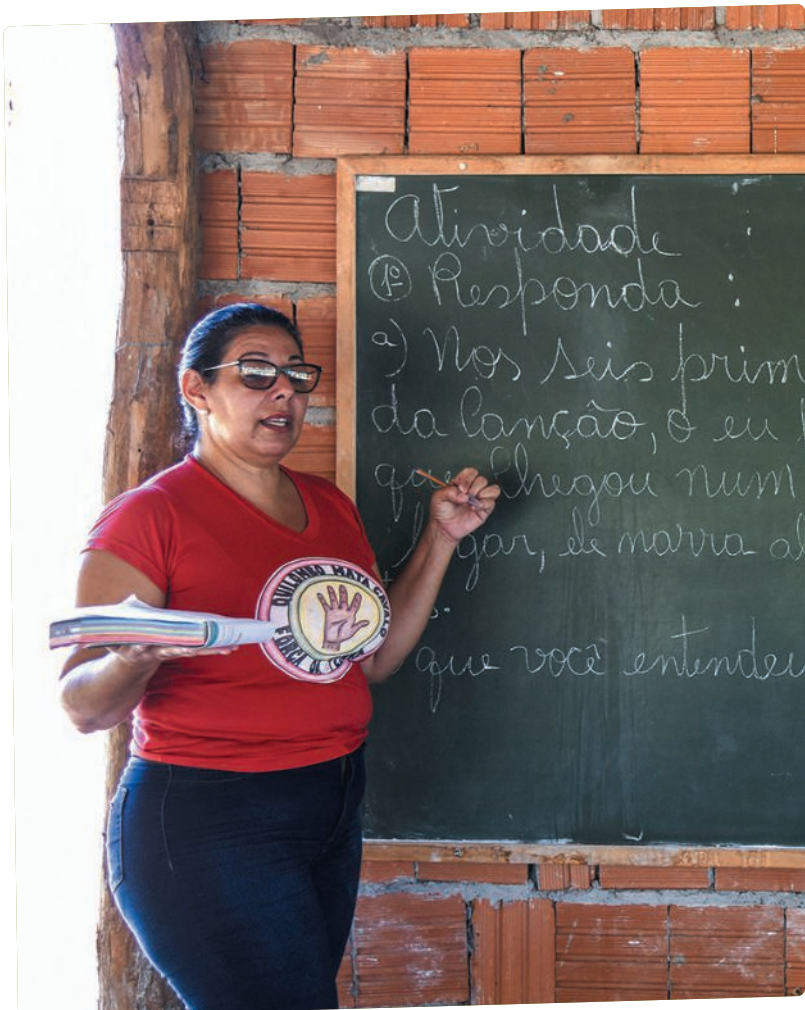 Atividade :
1º Responda :
a) Nos seis prim
da Canção, o eu
que Chegou num
lugar, ele narra al
que você entendeu
QUILOMBO MATA CAVALO
FORÇA